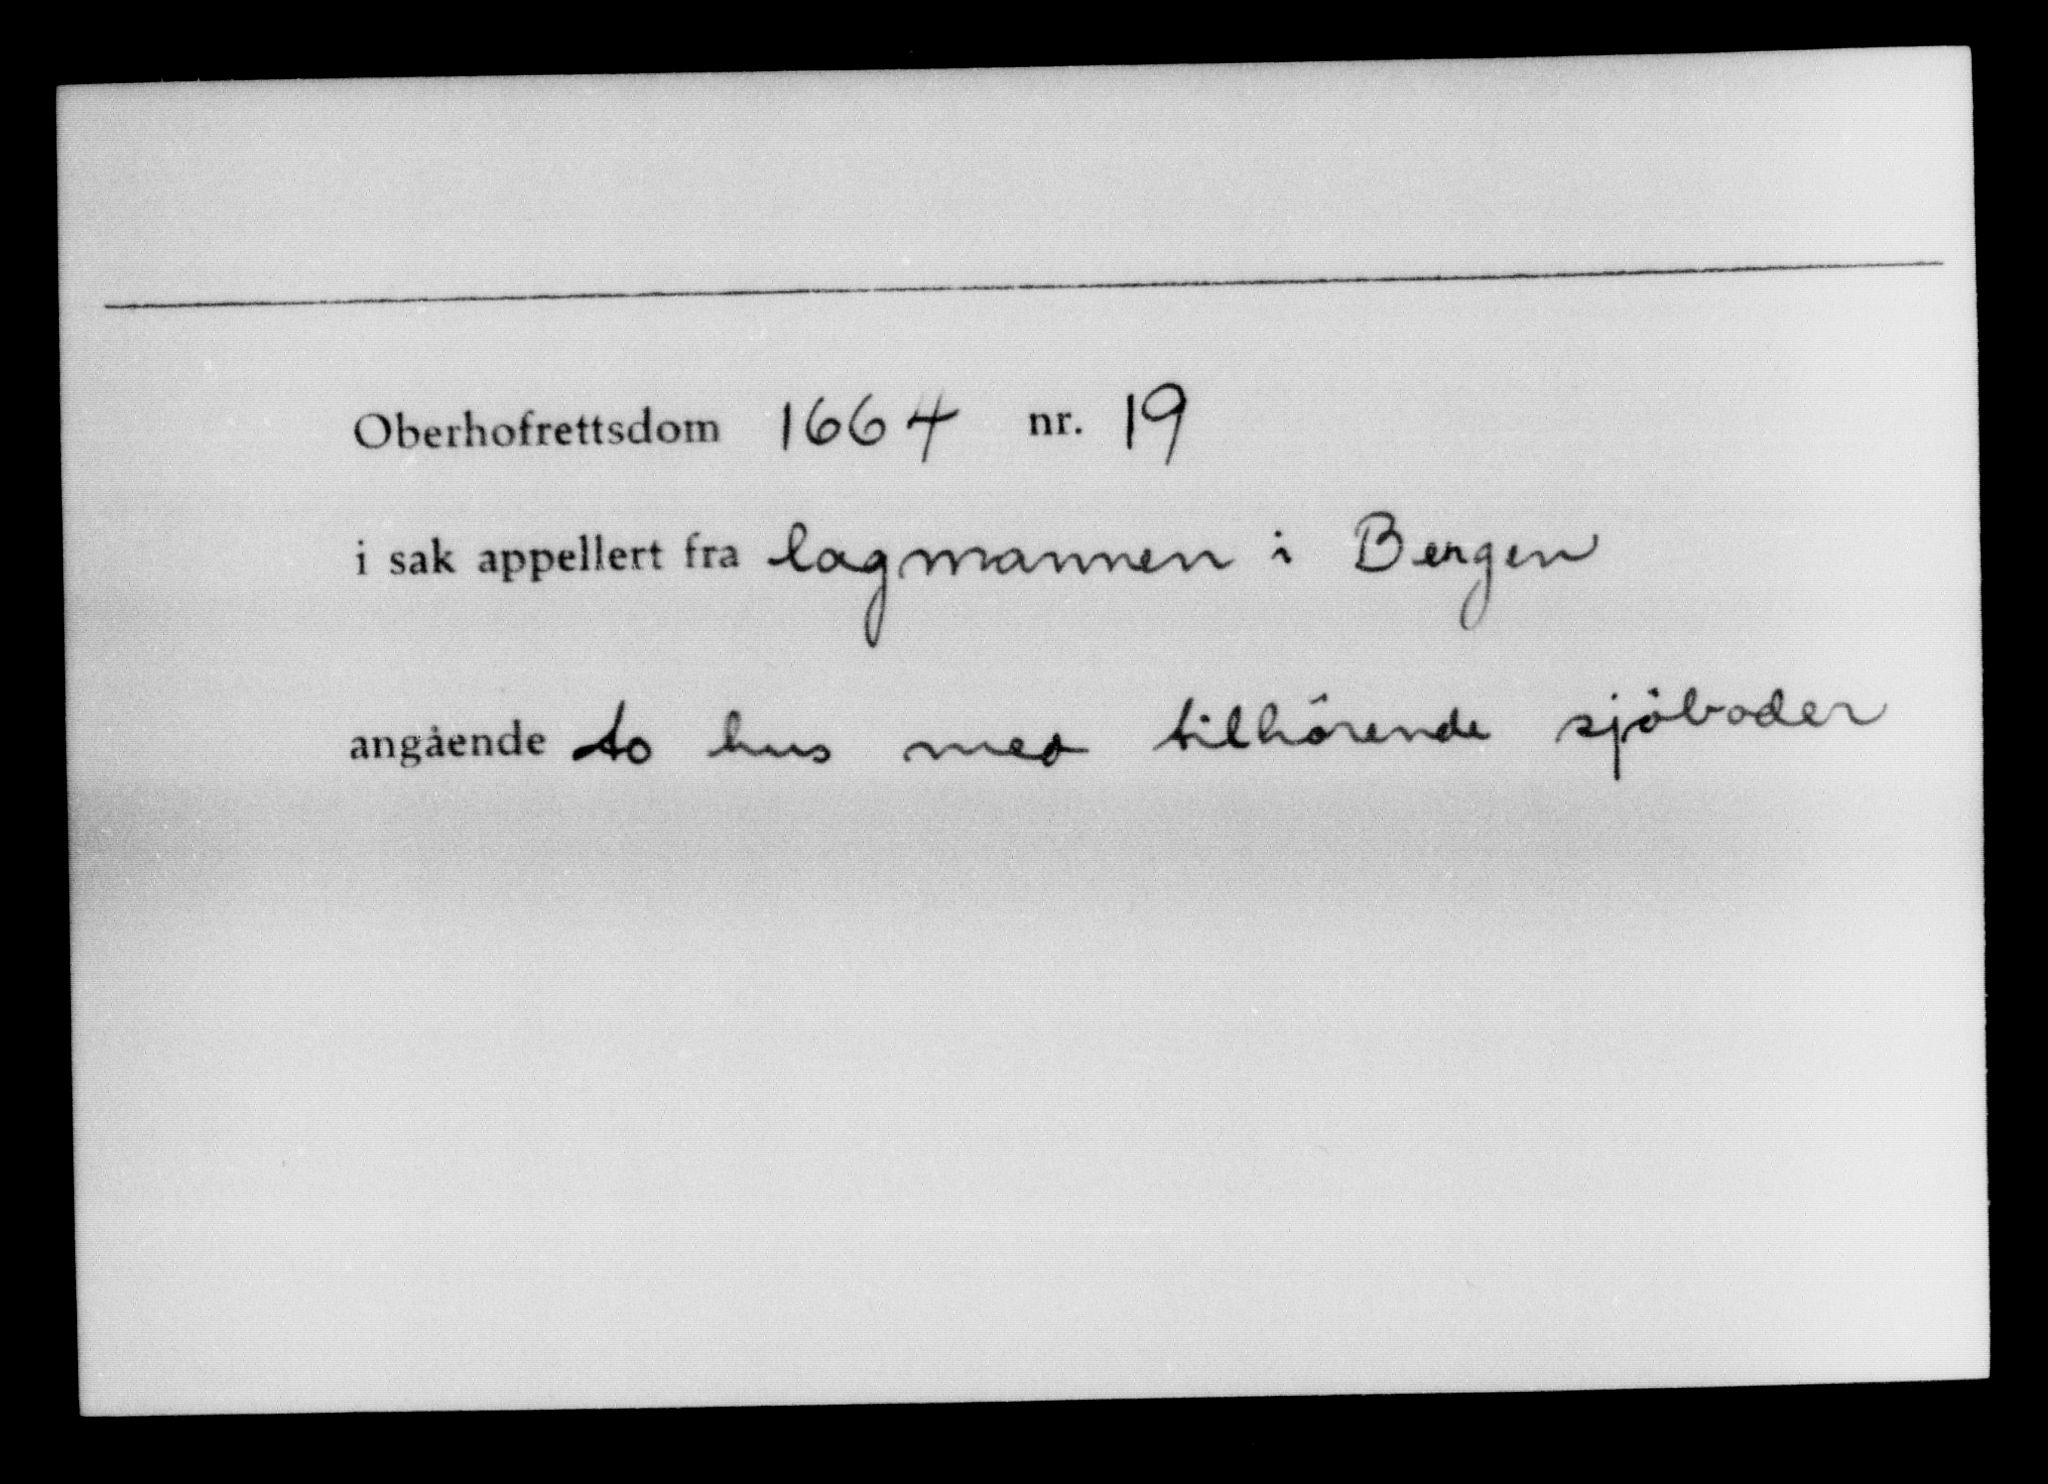 Oberhofrettsdom 1664 nr. 19
i sak appellert fra lagmannen i Bergen
angående to hus med tilhörende sjöboder